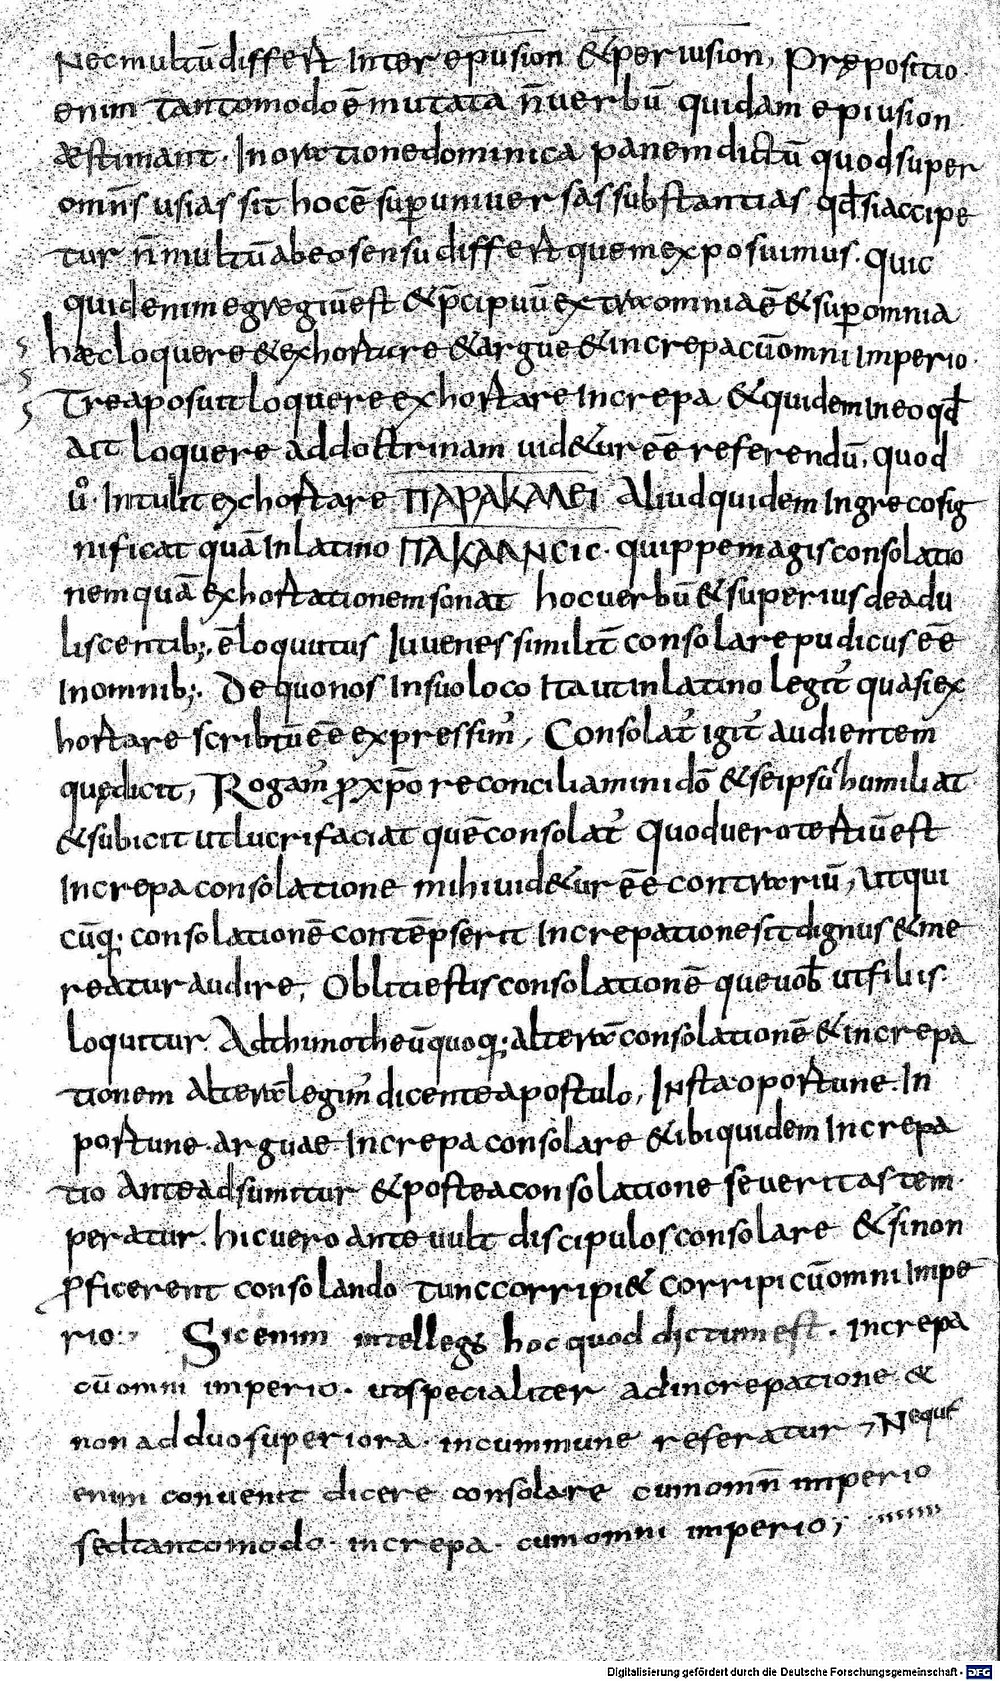 Nec multū differt Inter epiusion & periusion, Prępositio
enim tantomodo ē mutata n̄ uerbū quidam epiusion
æstimant. In oratione dominica panem dictū quod super
omn̄s usias sit hoc ē suꝑ uniuersas substantias qd̄ si accipe
tur n̄ multū ab eo sensu differt quem exposuimus. quic
quid enim egregiū est & p̄cipuū extra omnia ē & suꝑ omnia
hæc loquere & exhortare & argue & increpa cū omni Imperio.
Tre aposuit loquere exhortare Increpa & quidem In eo qd̄
ait loquere ad doctrinam uid&ur eē referendū, quod
ů. Intulit exhortare ΠΑΡΑΚΑΛΕΙ Aliud quidem In greco sig
nificat quā In latino ΠΑΚΑΛΗCΙC. quippe magis consolatio
nem quā exhortationem sonat hoc uerbū & superius de adu
liscentib;. ē loquutus Iuuenes similit̄ consolare pudicus eē
In omnib;. De quo nos In suo loco Ita ut in latino legit᾽ quasi ex
hortare scribtū eē expressim᾽, Consolat᾽ igit᾽ audientem
quędicit, Rogam᾽ ꝓ xp̄o reconciliamini dō & seipsū humiliat
& subicit ut lucrifaciat quē consolat᾽ Quod uero tertiū est
Increpa consolatione mihi uid&ur eē contrariū, ut qui
cūq; consolationē contēpserit Increpatione sit dignus & me
reatur audire, Obliti estis consolationē que uob̄ ut filiis
loquitur. Ad thimotheū quoq; altera consolationē & increpa
tionem altera legim᾽ dicente apostulo, Insta oportune. In
portune. arguae Increpa consolare & ibi quidem Increpa
tio Ante adsumitur & postea consolatione seueritas tem
peratur. hic uero ante uult discipulos consolare & si non
ꝓficerent consolando tunc corripi & corripi cū omni Impe
rio:, Sic enim intellegis hoc quod dictum est. Increpa
cū omni imperio. ut specialiter ad increpatione &
non ad duo superiora. in cummune referatur, Neque
enim conuenit dicere consolare cum omn̄ imperio
sed tantomodo. increpa. cum omni imperio;
Digitalisierung gefördert durch die Deutsche Forschungsgemeinschaft - DFG